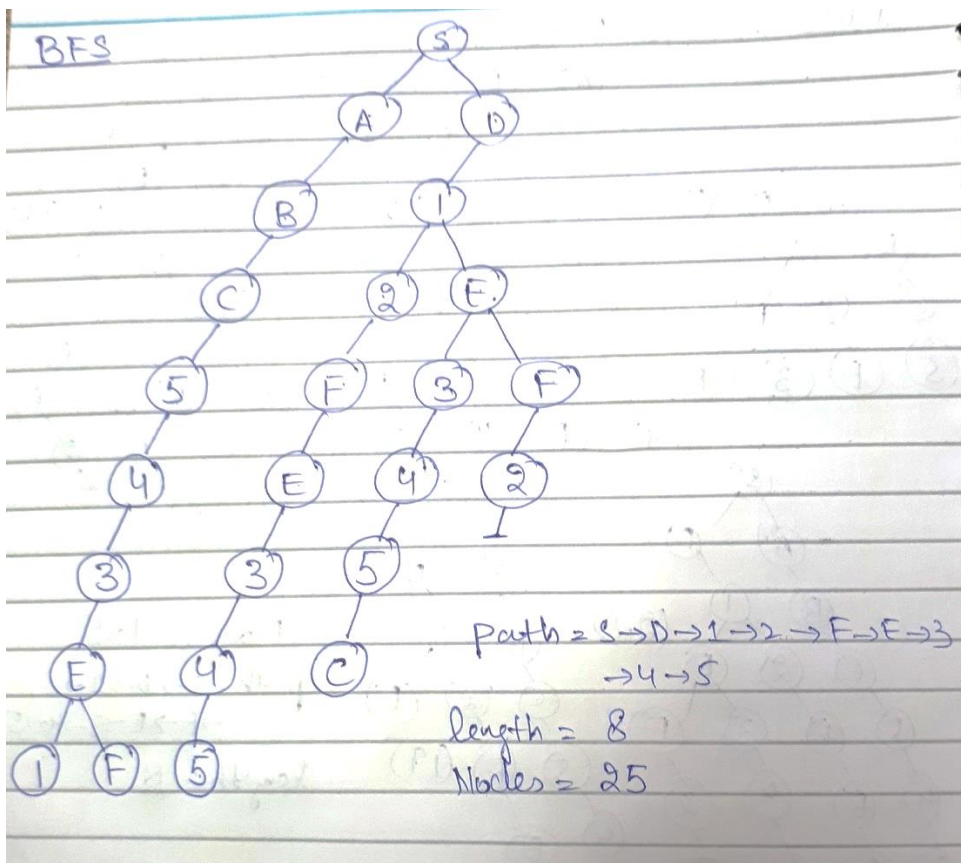 BFS
S
A D
B 1
C 2 E
5 F 3 F
4 E 4 2
3 3 5
E 4 C
1 F 5
Path = S→D→1→2→F→E→3
→4→5
length = 8
Nodes = 25